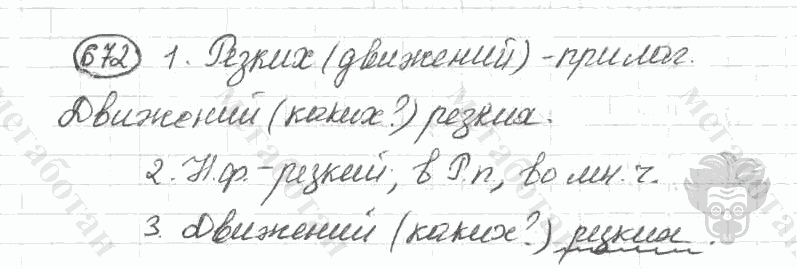 672 1. Резких (движений) - прилаг.
Движений (каких?) резких.
2. Н.ф. - резкий, в Р.п, во мн. ч.
3. Движений (каких?) резких.
мегаботан
мегаботан
мегаботан
мегаботан